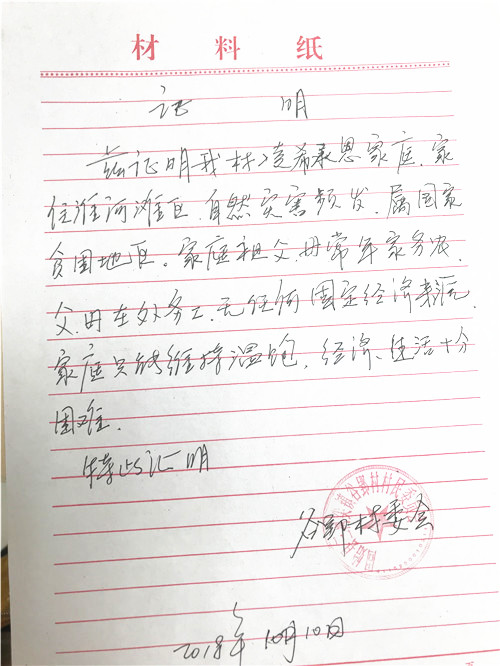 材料纸
证明
兹证明我村凌希承恩家庭,家
住淮河滩区,自然灾害频发,属国家
贫困地区。家庭祖父,母常年家务农,
父,母在外务工,无任何固定经济来源,
家庭只能维持温饱,经济、生活十分
困难。
特此证明
谷郢村委会
2018年10月10日